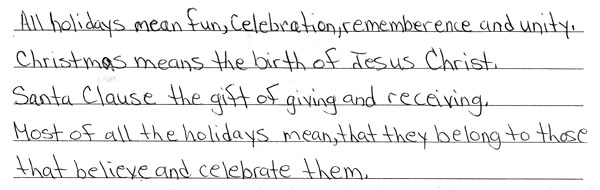 All holidays mean fun, Celebration, rememberence and unity.
Christmas means the birth of Jesus Christ.
Santa Clause the gift of giving and receiving.
Most of all the holidays mean, that they belong to those
that believe and celebrate them.